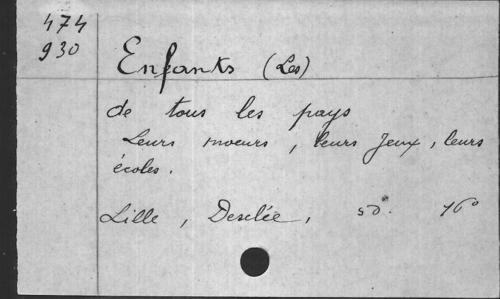 474
930
Enfants (Les)
de tous les pays
Leurs moeurs, leurs Jeux, leurs
écoles.
Lille, Desclée, sd. 16°